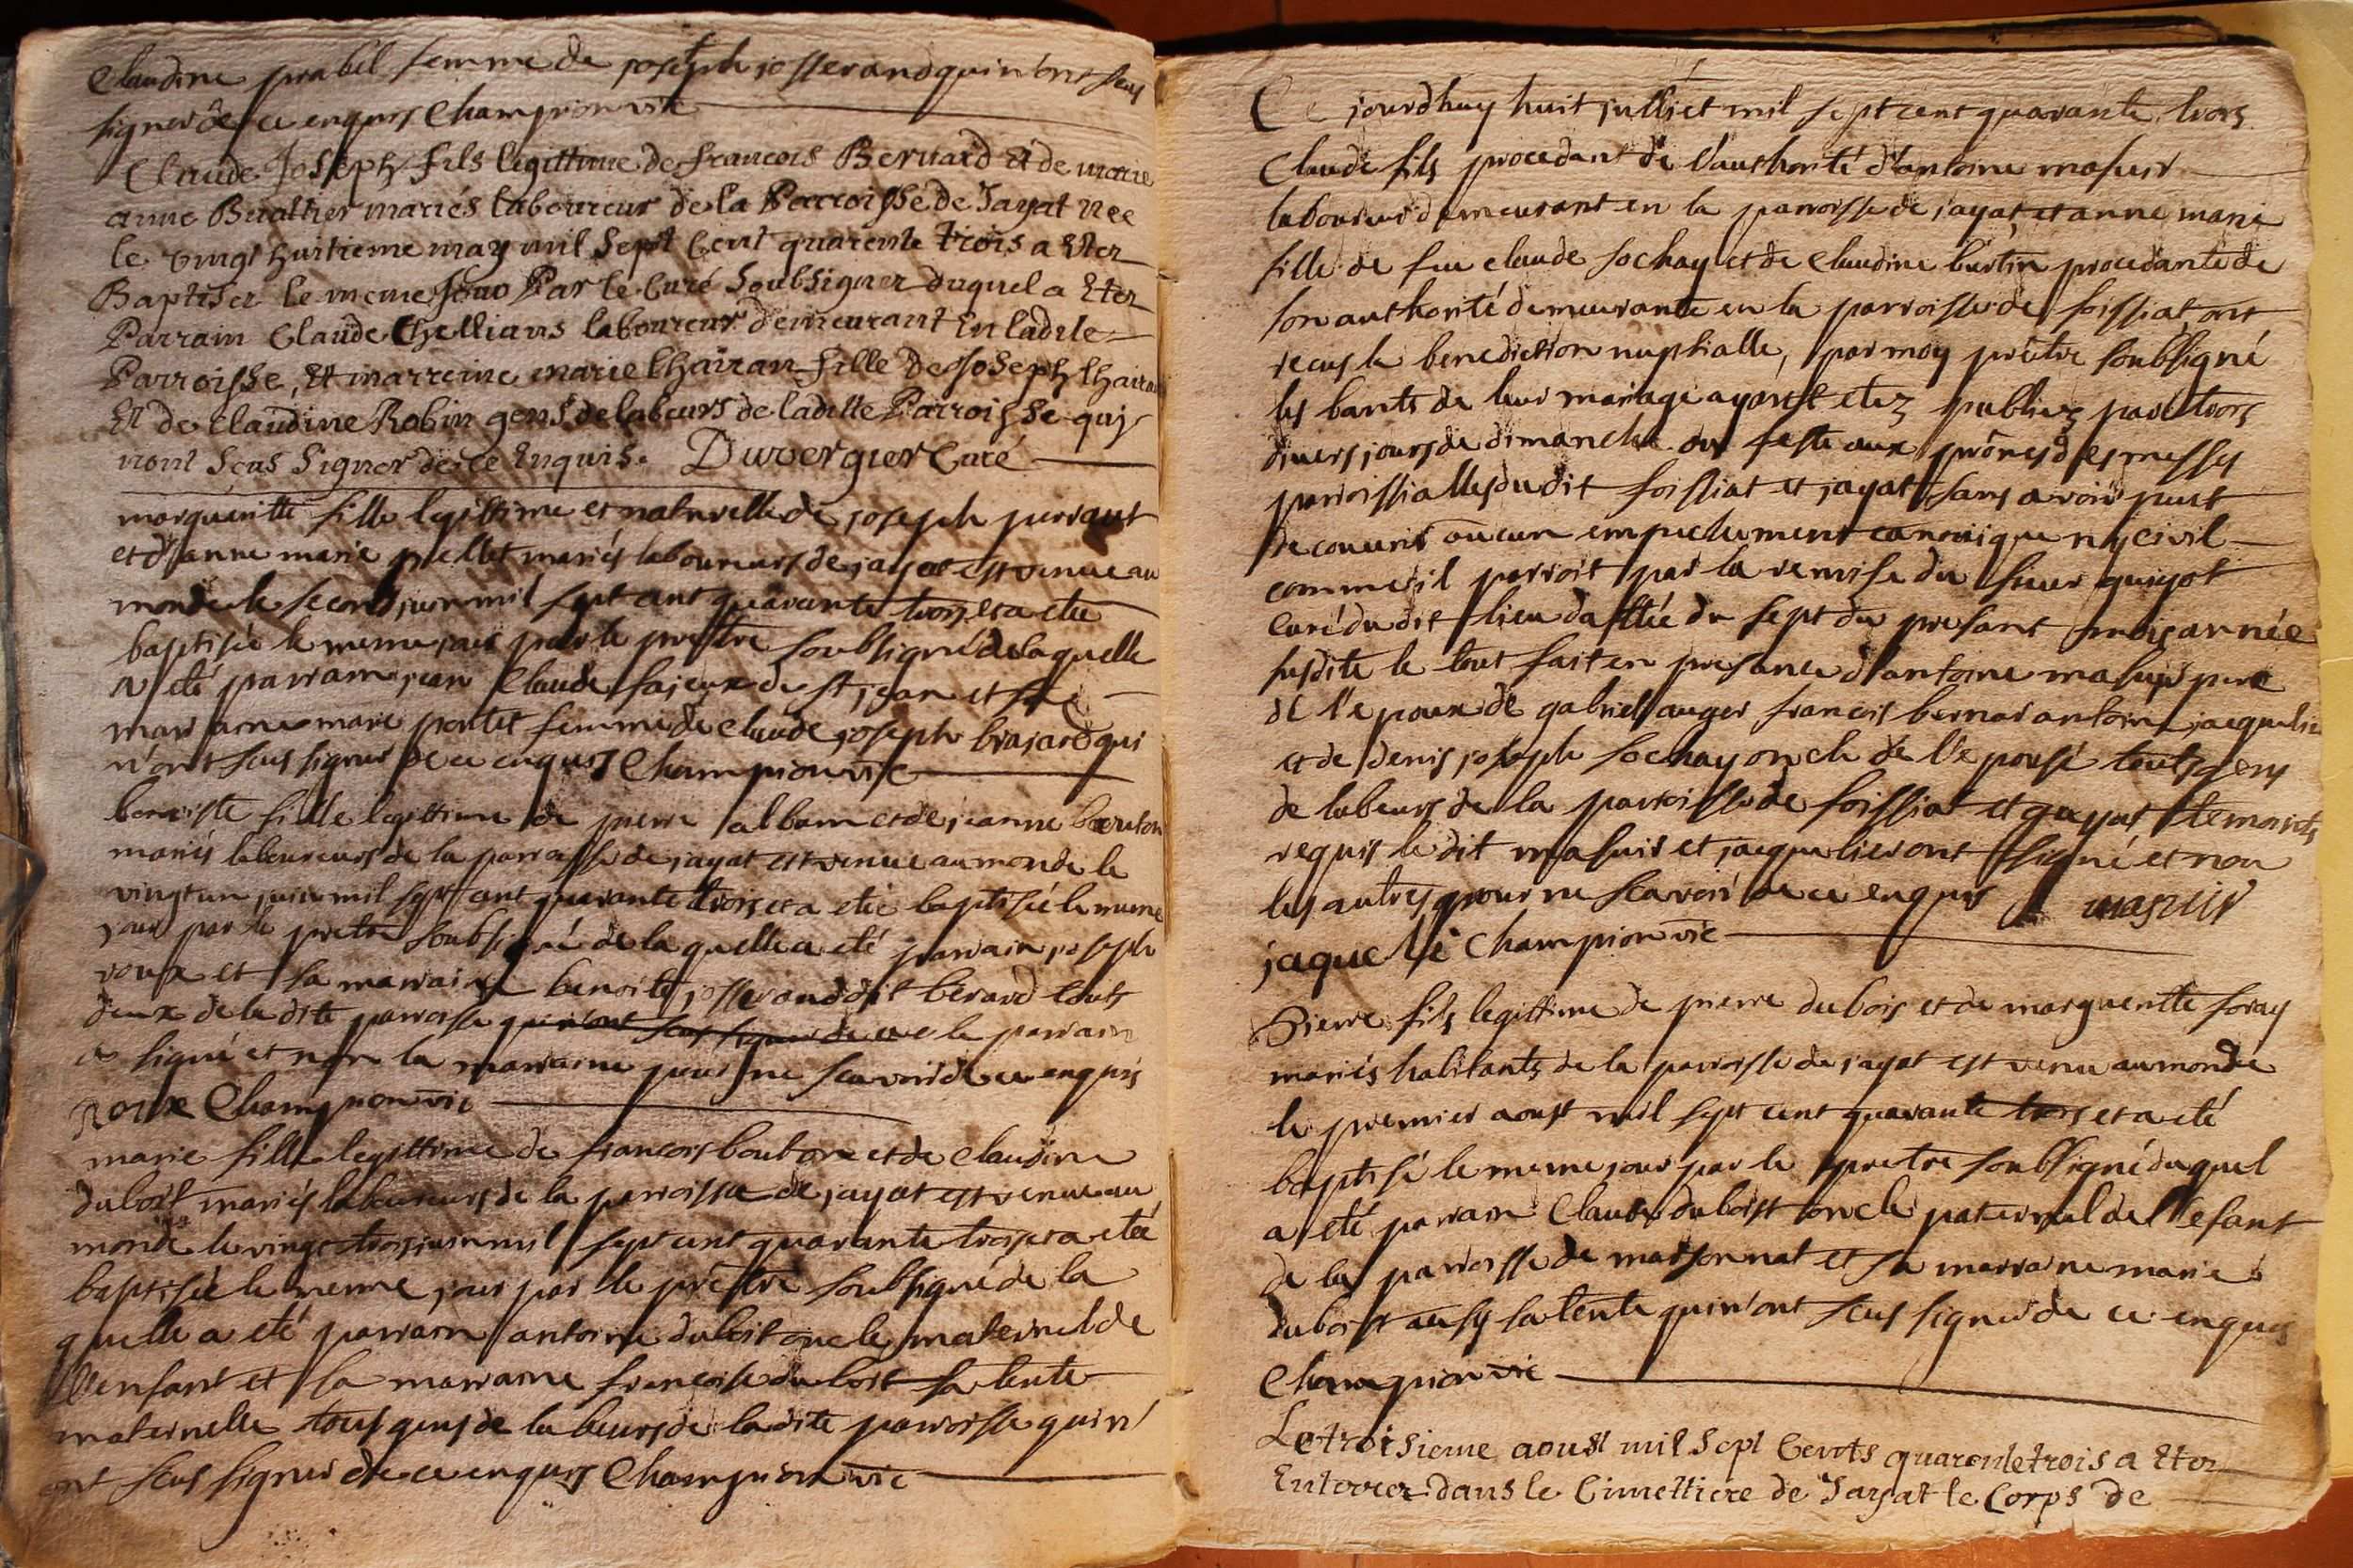 Claudine prabel femme de joseph josserand qui n'ont sceus
signer de ce enquis Championvic
Claude Joseph fils legittime de francois Bernard Et de marie
anne Bualtier mariés laboureur de la Parroisse de Jayat nee
le vingt huitieme may mil Sept Cent quarente trois a Eter
Baptiser le meme Jour Par le Curé Soubsigner duquel a Eter
Parrain Claude laboureur demeurant En ladite
Parroisse, Et marreine marie Chairan fille de Joseph Chairan
Et de Claudine Robin gens de labeurs de laditte Parroisse quy
nont Sceus Signer de ce Enquis. Duvergier Curé
margueritte fille legittime et naturelle de joseph perraut
et d'anne marie pellet mariés laboureurs de jayat est venue au
monde le second juin mil sept cent quarante trois et a etée
baptisée le meme jour par le prestre soubsigné de laquelle
a eté parrain jean Claude de st jean et sa
mar anne marie pontet femme de Claude joseph brajard qui
n'ont sceus signer de ce enquis Championvic
benoiste fille legittime de pierre alban et de jeanne bouton
mariés laboureurs de la parroisse de jayat est venue au monde le
vingt un juin mil sept cent quarante trois et a etée baptisée le meme
jour par le pretre soubsigné de la quelle a eté parrain joseph
roux et sa marraine benoite josserand dit bérard touts
deux de la dite parroisse qui n'ont sceus signer de ce le parrain
a signé et non la marraine pour ne scavoir de ce enquis
Roux Championvic
marie fille legittime de francois bouton et de Claudine
duboit mariés laboureurs de la parroisse de jayat est venue au
monde le vingt trois juin mil sept cent quarante trois et a etée
baptisée le meme jour par le prêtre soubsigné de la
quelle a eté parrain antoine duboit oncle maternel de
l'enfant et sa marraine francoise duboit sa tente
maternelle tous gens de labeurs de ladite parroisse qui n'
ont sceus signer de ce enquis Championvic
Ce jourdhuy huit julliet mil sept cent quarante trois
Claude fils procedant de l'authorité d'antoine masuir
laboureur demeurant en la parroisse de jayat et anne marie
fille de feu claude sochay et de Claudine burtin procedante de
son authorité demeurante en la parroisse de foissiat ont
recus la benediction nuptialle, par moy prêtre soubsigné
les bants de leur mariage ayant etez publiez par trois
divers jours de dimanche ou feste aux prônes des messes
parroissialles du dit foissiat et jayat sans avoir peut
decouvrir aucun empechement canonique ny civil
comme il parroit par la remise du sieur guyot
curé du dit lieu dattée du sept du presant mois année
susdite le tout fait en presance d'antoine masuir pere
de l'epoux de gabriel auger francois bernar antoine jacquelie
et de denis joseph sochay oncle de l'epouse touts gens
de labeurs de la parroisse de foissiat et gayat temoints
requis le dit masuir et jacquelier ont signé et non
les autres pour ne scavoir de ce enquis masuir
jaquelié Championvic
Pierre fils legittime de pierre dubois et de marguentte foray
mariés habitants de la parroisse de jayat est venu au monde
le premier aoust mil sept cent quarante trois et a eté
baptisé le meme jour par le pretre soubsigné duquel
a eté parrain Claude duboist oncle paternel de l'efant
de la parroisse de marsonnat et sa marraine marie
duboist aussy sa tente qui n'ont sceus signer de ce enquis
Championvic
Le troisieme aoust mil Sept Cents quarente trois a Eter
Enterrer dans le Cimettiere de Jayat le Corps de